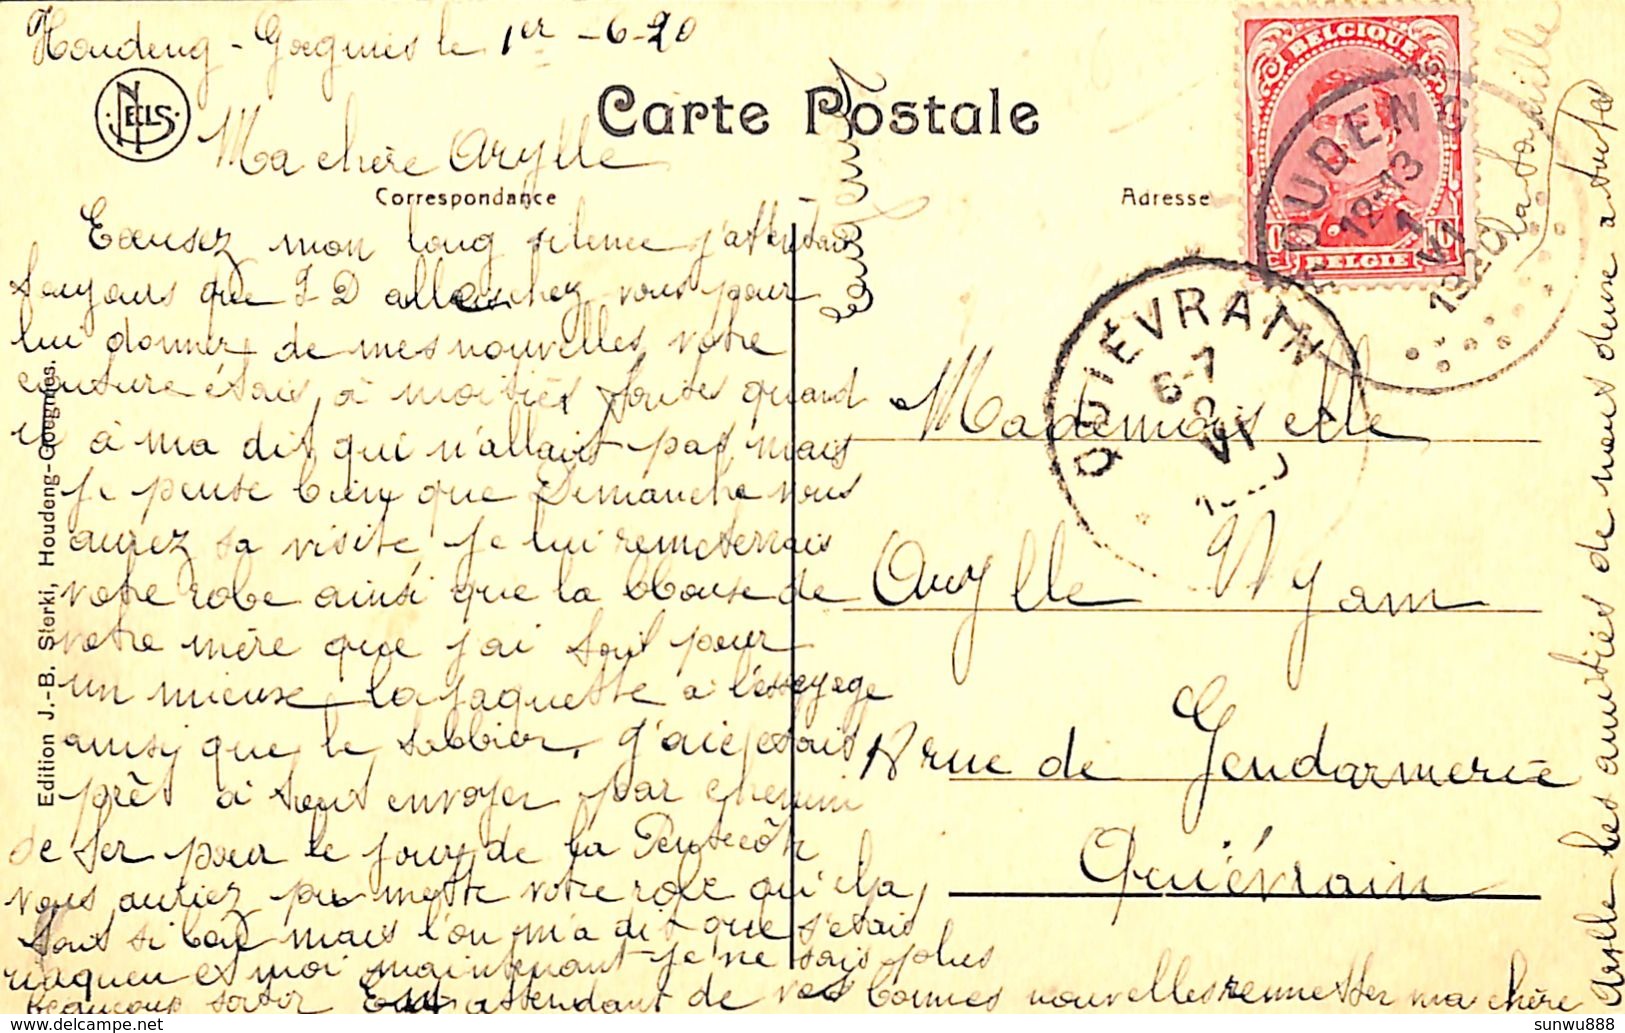 Houdeng-Goegnies le 1er -6-20
NELS
Carte Postale
Ma chère Arylle
Correspondance
Adresse
BELGIQUE
10 c
BELGIE
HOUDENG
12-13
1
VI
1920
QUIÉVRAIN
6-7
2
VI
Excusez mon long silence j'attendais
toujours que I D alla chez vous pour
lui donner de mes nouvelles votre
couture étais à moitiés faites quand
il à ma dit qui n'allait pas, mais
je pense bien que Dimanche vous
aurez sa visite je lui remeterrais
votre robe ainsi que la blouse de
votre mère que j'ai fait pour
un mieuse la jaquette à l'essayage
ainsi que le tablier, j'
prêt à tout envoyer par chemin
de fer pour le jour de la Pentecôte
vous auriez pu mettre votre robe qui la
fait si beau mais l'on m'a dit que s'etais
et moi maintenant je ne sais plus
beaucoup sortir En attendant de vos bonnes nouvelles remettes ma chère
Arylle les amitiés de nous deuse a toute la famille
Mademoiselle
Arylle Nyam
rue de Gendarmerie
Quiévrain
Edition J.-B. Sierki, Houdeng-Goegnies.
sunwu888